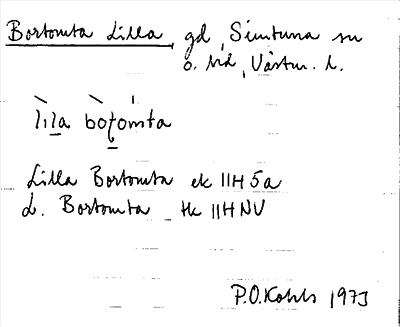 Bortomta Lilla, gd, Simtuna sn
o. hd, Västm. l.
lila boṭomta
Lilla Bortomta ek 11H5a
L. Bortomta tk 11HNV
P.O.Kohls 1973